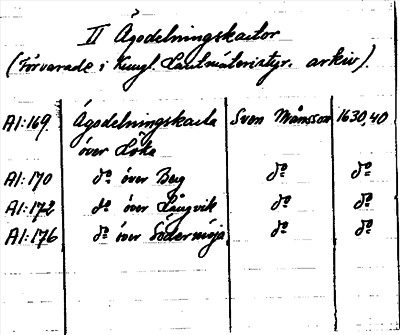 II Ägodelningskartor
(Förvarade i Kungl. Lantmäteristyr. arkiv).
A1:169. Ägodelningskarta Sven Månsson 1630,40
över Löka
A1:170 do över Berg do do
A1:172 do över Långvik do do
A1:176 do över Södermöja do do